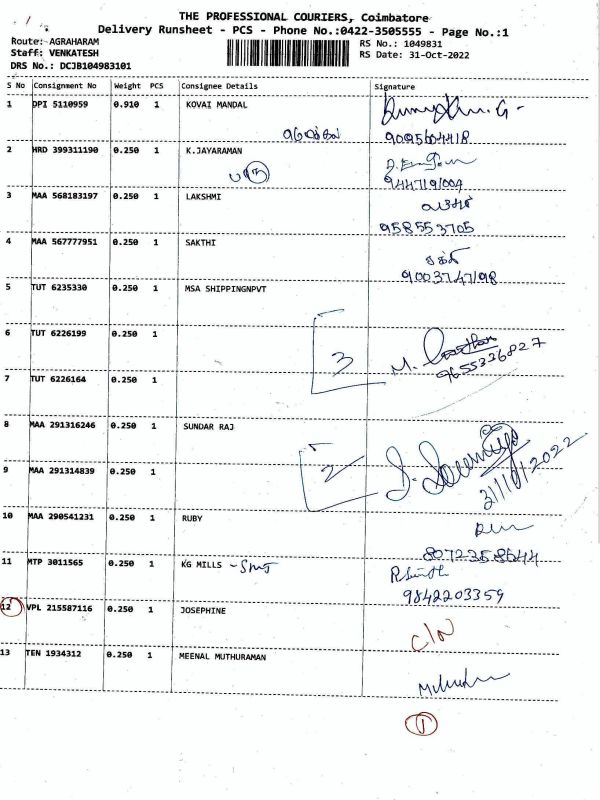 THE PROFESSIONAL COURIERS, Coimbatore
Delivery Runsheet - PCS - Phone No.:0422-3505555 - Page No.:1
Route: AGRAHARAM RS No.: 1049831
Staff: VENKATESH RS Date: 31-Oct-2022
DRS No.: DCJB104983101
S No Consignment No Weight PCS Consignee Details Signature
1 DPI 5110959 0.910 1 KOVAI MANDAL
2 HRD 399311190 0.250 1 K.JAYARAMAN
9447191004
3 MAA 568183197 0.250 1 LAKSHMI
958553705
4 MAA 567777951 0.250 1 SAKTHI
சக்தி
9003747198
5 TUT 6235330 0.250 1 MSA SHIPPINGNPVT
6 TUT 6226199 0.250 1
3 M.
9655336827
7 TUT 6226164 0.250 1
8 MAA 291316246 0.250 1 SUNDAR RAJ
2
31/10/2022
9 MAA 291314839 0.250 1
10 MAA 290541231 0.250 1 RUBY
8072358644
11 MTP 3011565 0.250 1 KG MILLS
9842203359
12 VPL 215587116 0.250 1 JOSEPHINE
C/N
13 TEN 1934312 0.250 1 MEENAL MUTHURAMAN
1